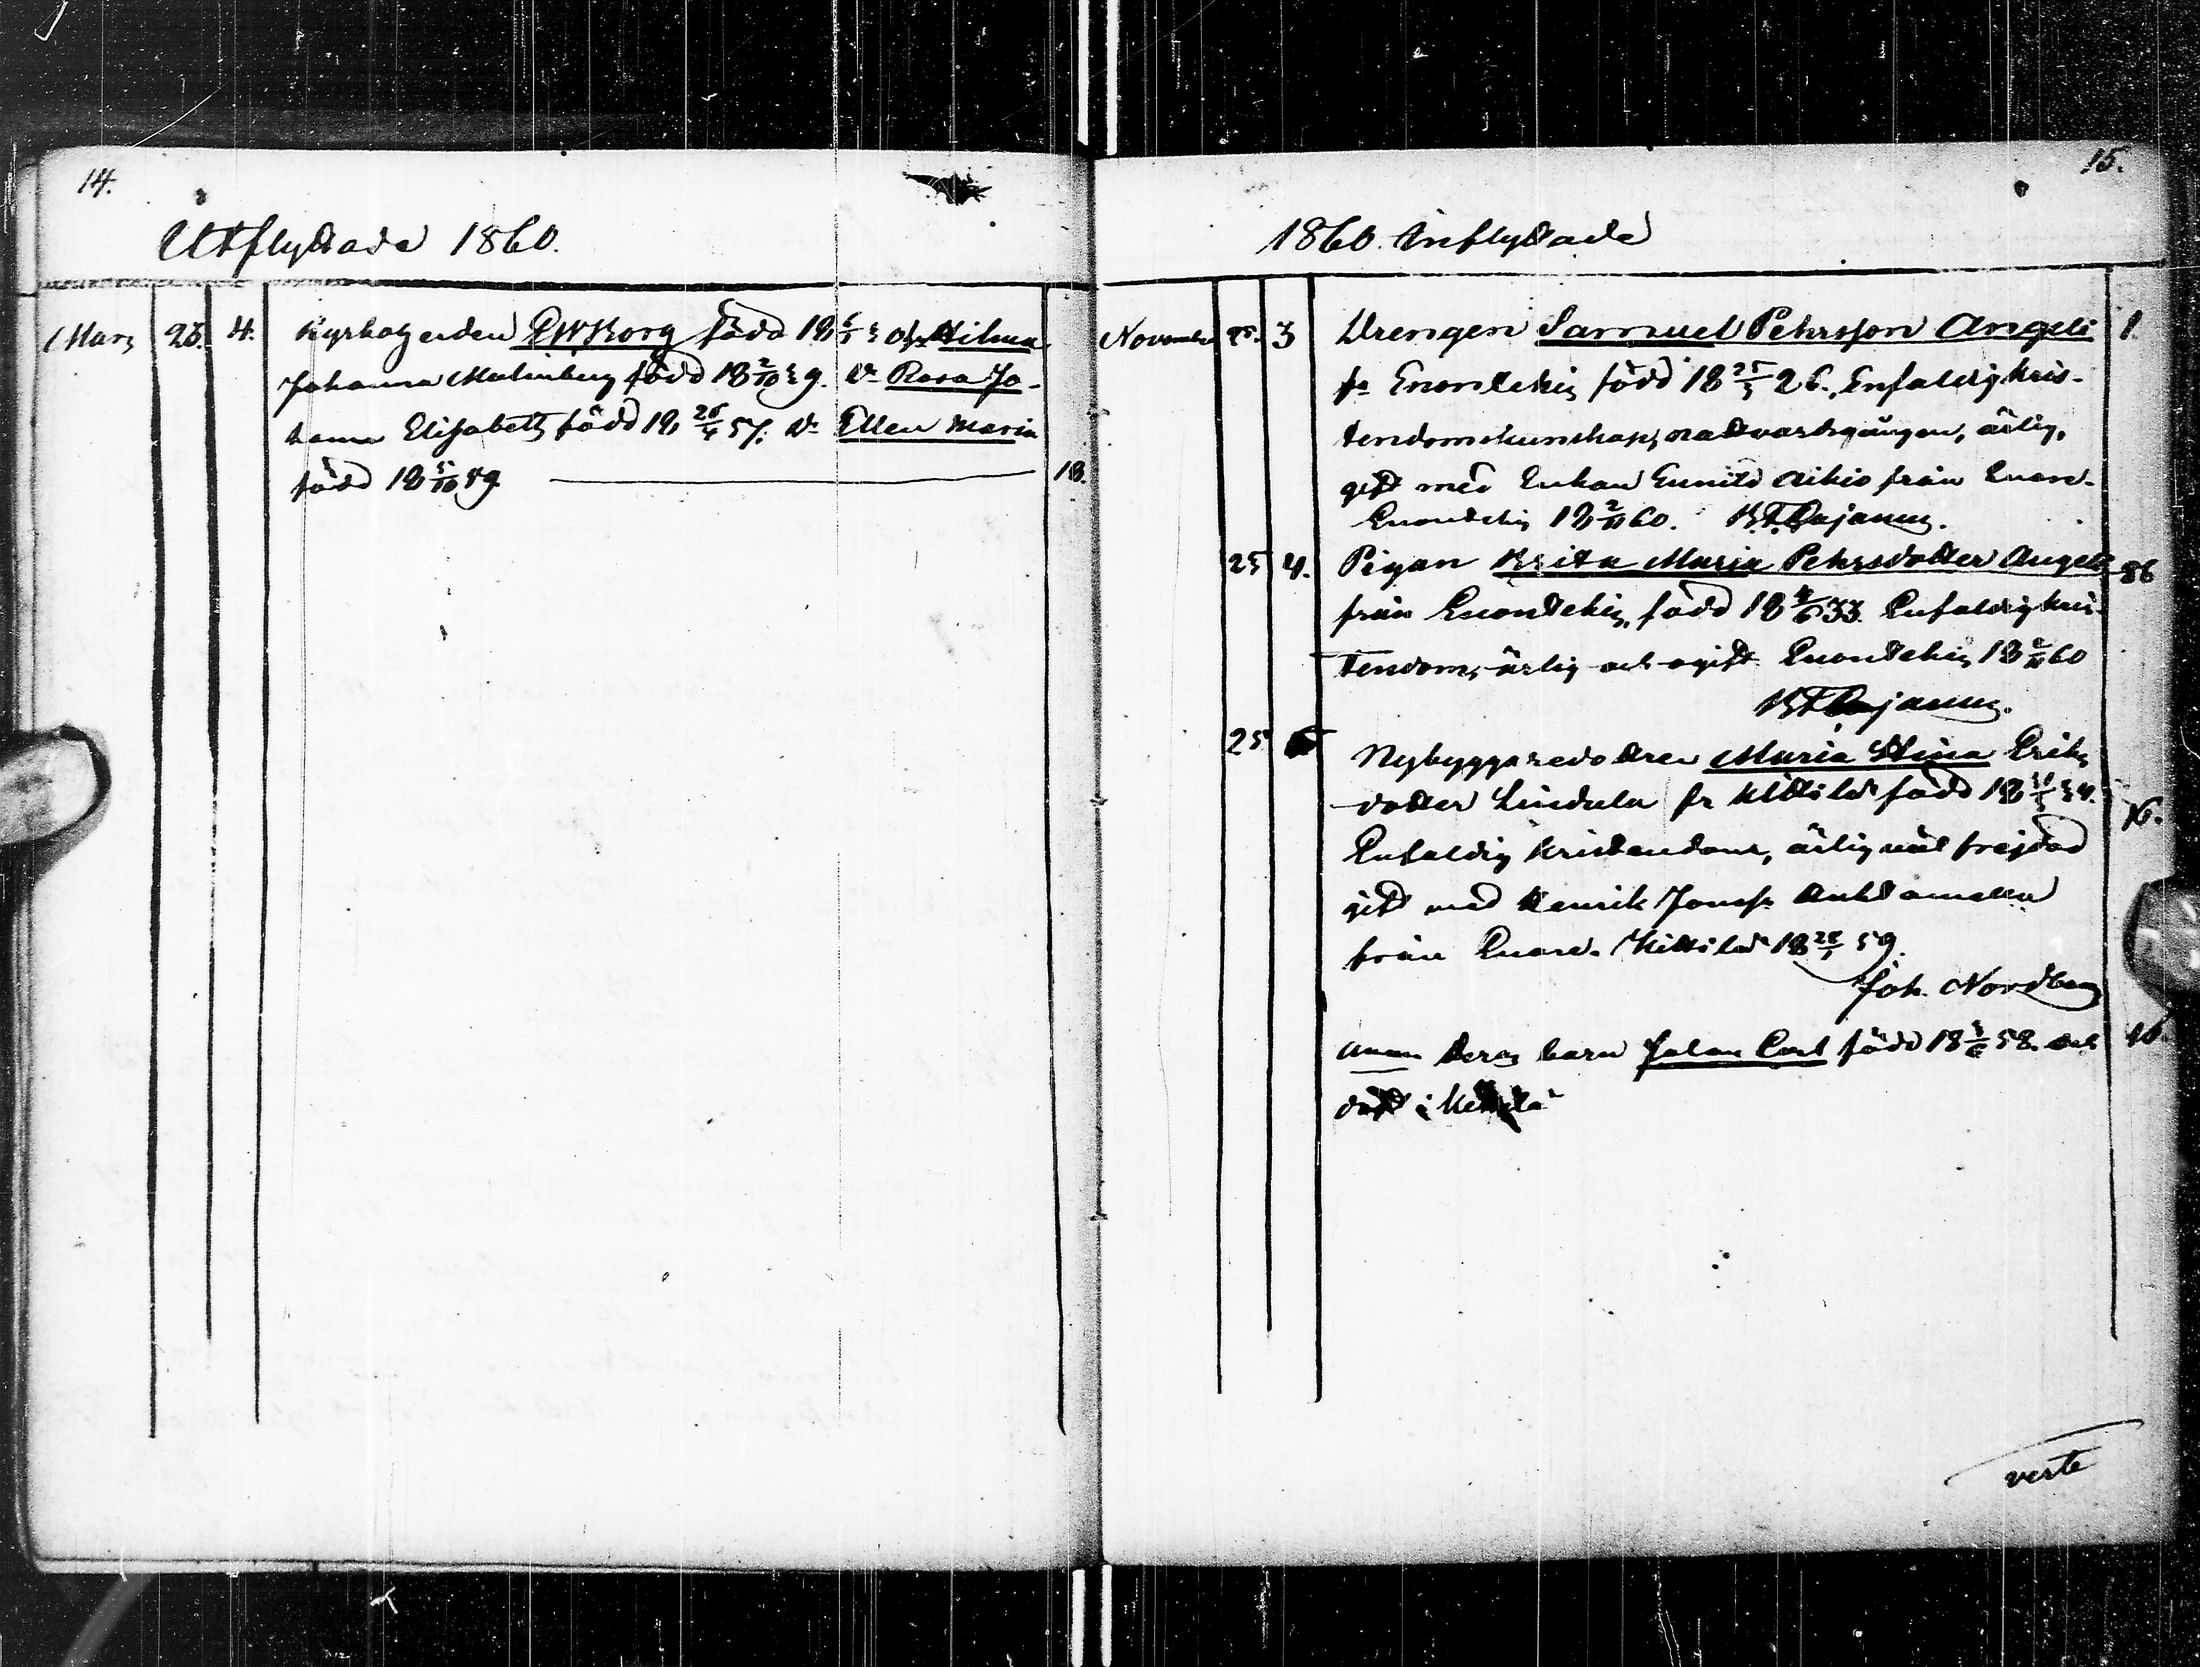 14.
Utflyttade 1860.
Mars 23. 4. Kyrkoherden EWBorg född 18 5/5 3 Hilma
Johanna Malmberg född 18 2/10 29. Dr Rosa Jo-
hanna Elisabeth född 18 26/4 57. Dr Ellen Maria
född 18 5/10 59 18.
15.
1860 Inflyttade
November 25. 3 Drengen Samuel Pehrsson Angeli 1.
fr Enontekis född 18 25/3 26. Enfaldig kris-
tendomskunskap, nattvardsgången, ärlig,
gift med Enkan Gunild Aikio från Enare.
Enontekis 18 2/11 60.
25 4. Pigan Brita Maria Pehrsdotter Angeli 86
från Enontekis, född 18 4/6 33. Enfaldig kris-
tendom, ärlig och ogift Enontekis 18 2/11 60
25 Nybyggaredottren Maria Stina Eriks
dotter Lindula fr Kittilä född 18 34. 16.
Enfaldig kristendom, ärlig väl frejdad
gift med Henrik Jonass.
från Enare. Kittilä 18 25/1 59.
Joh. Nordberg
deras barn Johan Carl född 18 5/6 58. och 16.
döpt i Kittilä
verte